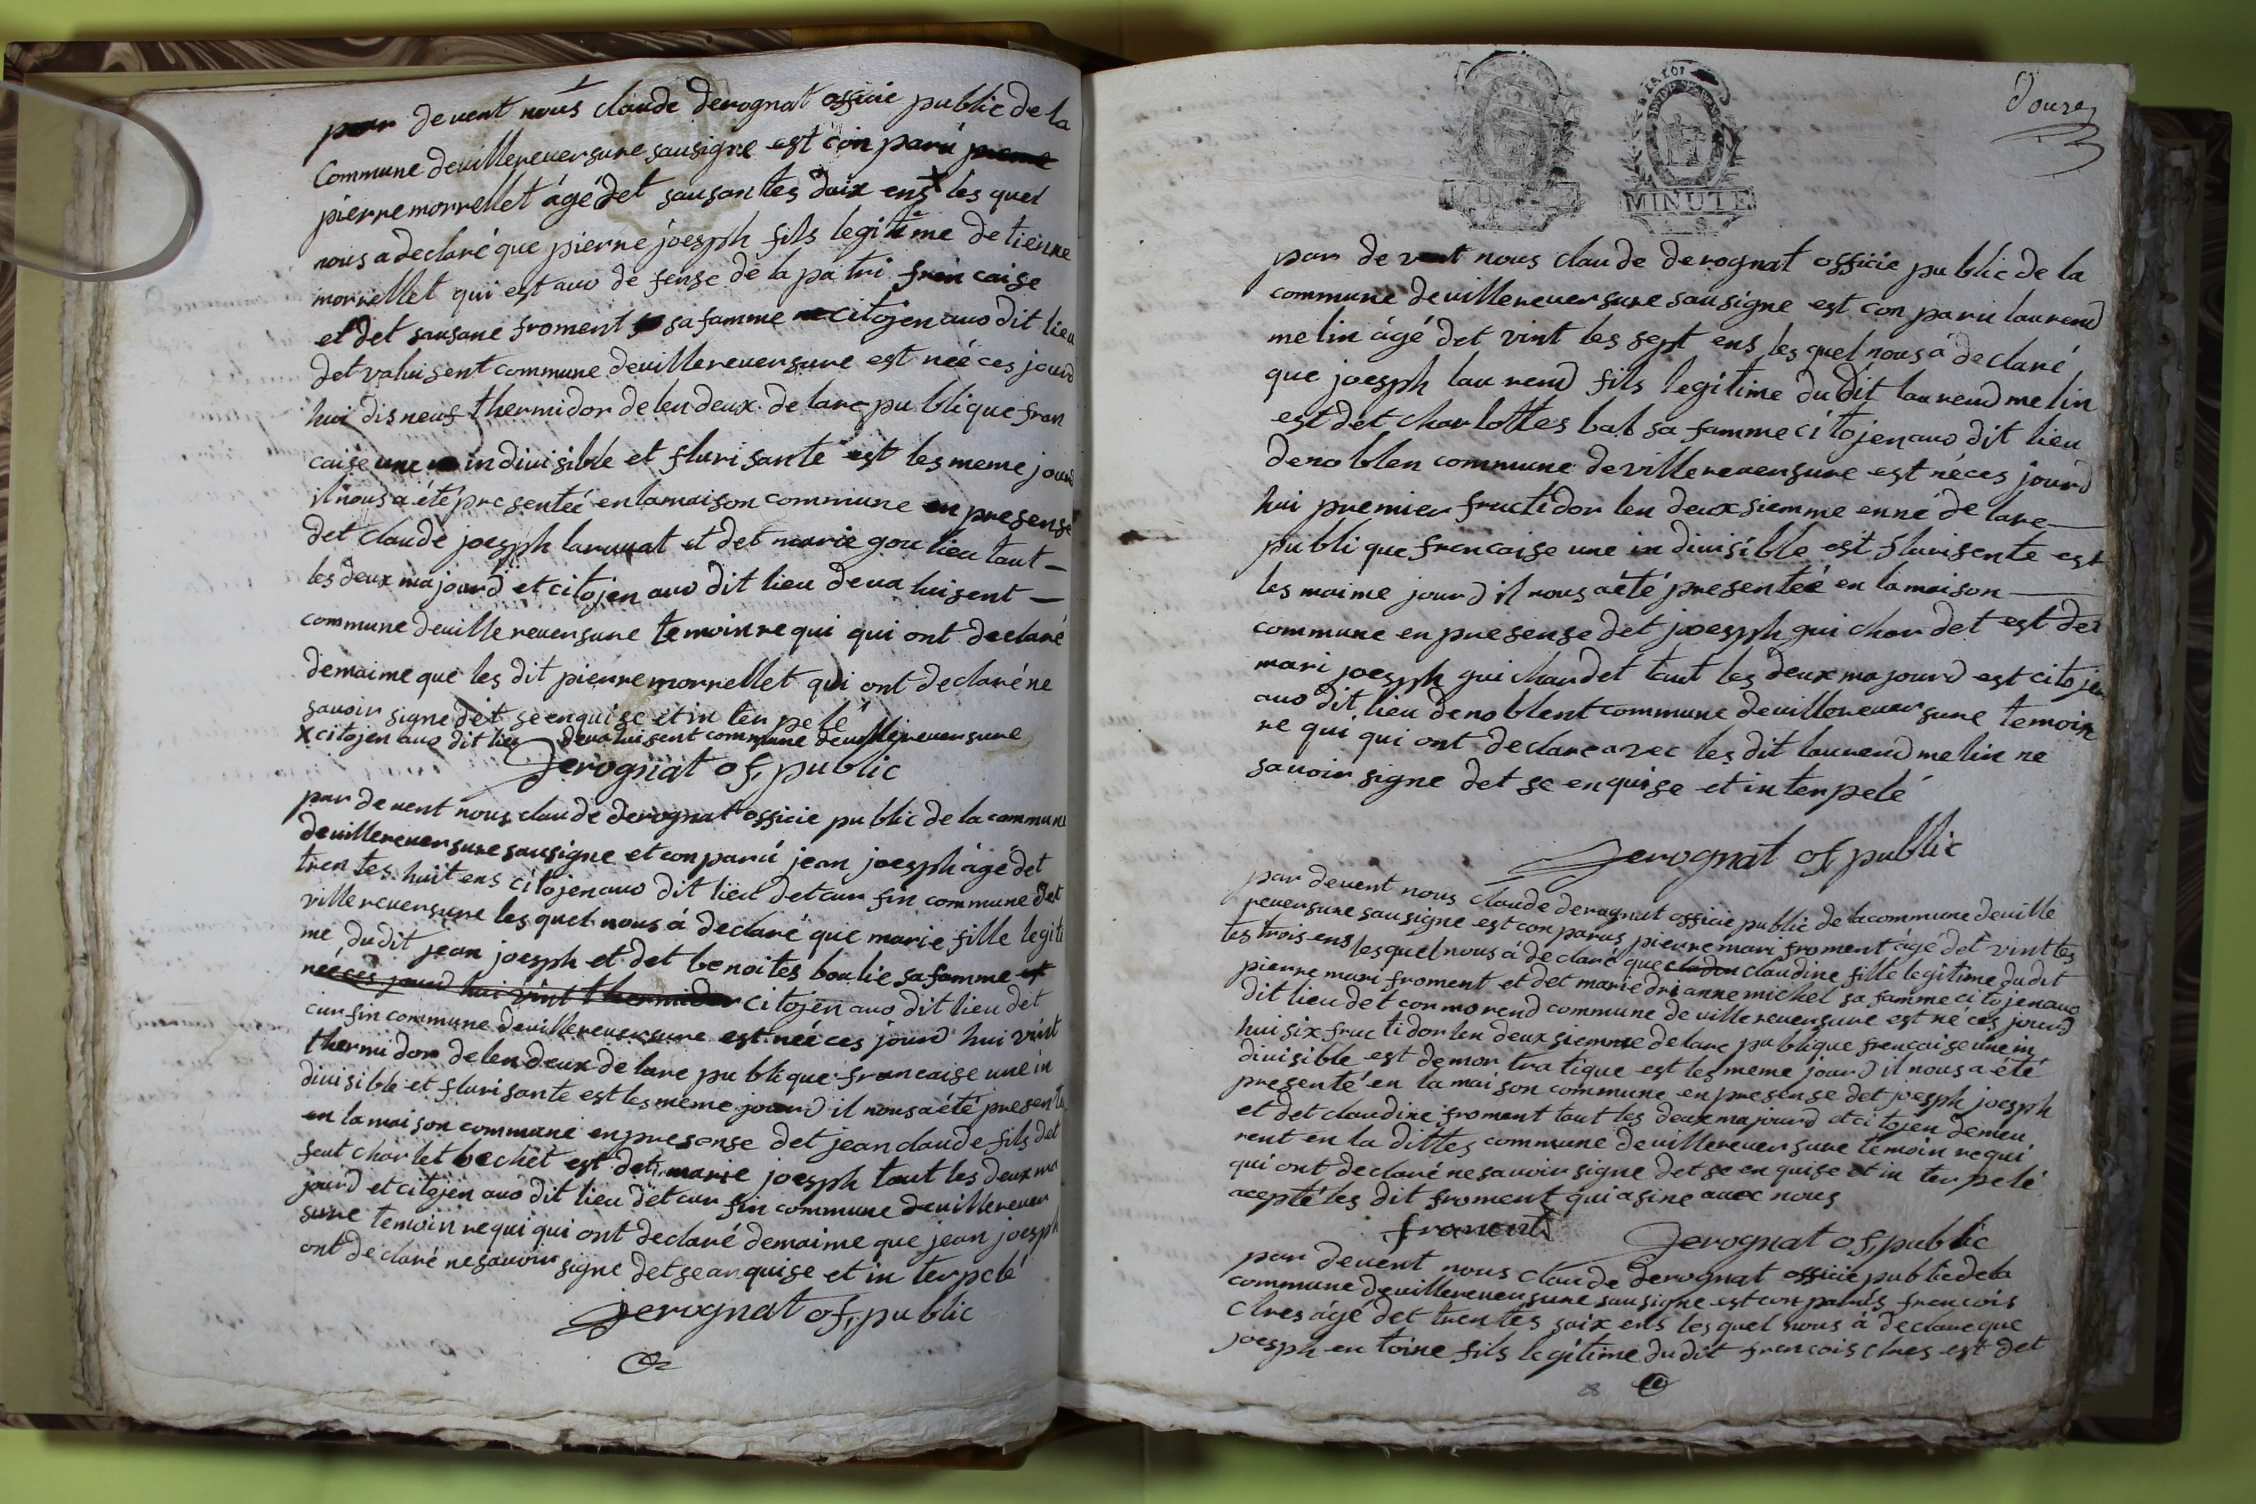 par devent nous claude derognat officie public de la
commune devillereversure sausigne est con paru
pierre morrellet âgé det sausantes daix ens x les quel
nous a declaré que pierre joesph fils legitime de tienne
morrellet qui est auo de fense de la patri francaise
et det sausane froment sa famme citojen auo dit lieu
det valuisent commune devillereversure est néé ces jourd
hui dis neuf thermidor de len deux de lare publique fran
caise une indivisible et flurisante est les meme jourd
il nous a été presenteé en la maison commune en presense
det claude joesph laruat et det marie goulieu taut
les deux majourd et citojen auo dit lieu devaluisent
commune devillereversure temoin requi qui ont declaré
demaime que les dit pierre morrellet qui ont declaré ne
savoir signe det se enquise et in ter pelé
x citojen auo dit lieu devaluisent commune devillereversure
Derognat of, public
par devent nous claude derognat officie public de la commune
devillereversure sausigne et con paru jean joesph âgé det
trentes huit ens citojen auo dit lieu det cur fin commune det
villereversure les quel nous á declaré que marie fille legiti
me du dit jean joesph et det benoites boulie sa famme est
néé ces jourd hui vint thermidor citojen auo dit lieu det
cur fin commune devillereversure est néé ces jourd hui vint
thermidor de len deux de lare publique francaise une in
divisible et flurisante est les meme jourd il nous a été presenté
en la maison commune en presense det jean claude fils det
feut charlet bechet est det marie joesph taut les deux ma
jourd et citojen auo dit lieu det cur fin commune devillerever
sure temoin requi qui ont declaré demaime que jean joesph
ont declaré ne savoir signe det se anquise et in ter pelé
Derognat of, public
douze
LA LOI
MINUTE
par devent nous claude derognat officie public de la
commune devillereversure sausigne est con paru laurend
melin âgé det vint les sept ens les quel nous á declaré
que joesph laurend fils legitime du dit laurend melin
est det charlottes bal sa famme citojen auo dit lieu
denoblen commune devillereversure est né ces jourd
hui premier fructidor len deuxsiemme enné de lare
publique francaise une indivisible est flurisente est
les maime jourd il nous a été presenteé en la maison
commune en presense det joesph guichardet est det
mari joesph guichardet taut les deux majourd est citojen
auo dit lieu denoblent commune devillereversure temoin
requi qui ont declare avec les dit laurend melin ne
savoir signe det se enquise et interpelé
Derognat of public
par devent nous claude derognat officie public de la commune deville
reversure sausigne est con parus pierre mari froment âgé det vint tes
tes trois ens les quel nous á declaré que claudine fille legitime du dit
pierre mari froment et det marie drianne michel sa famme citojen auo
dit lieu det cormorend commune de villereversure est né ces jourd
hui six fructidor len deuxsiemme de lare publique francaise une in
divisible est demon tratique est les meme jourd il nous a été
presenté en la maison commune en presense det joesph joesph
et det claudine froment taut les deux majourd et citojen demeu
rent en la dittes commune devillereversure temoin requi
qui ont declaré ne savoir signe det se enquise et in ter pelé
acepté les dit froment qui a sine avec nous
froment Derognat of, public
par devent nous claude derognat officie public de la
commune devillereversure sausigne est con parus francois
clres âgé det trentes saix ens les quel nous á declare que
joesph en toine fils legitime du dit francois clres est det